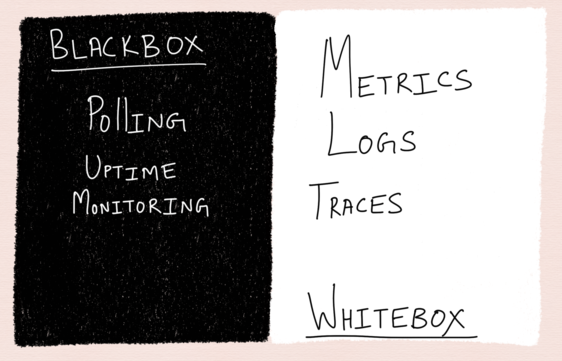 BLACKBOX
Polling
UPTIME
MONITORING
METRICS
LOGS
TRACES
WHITEBOX